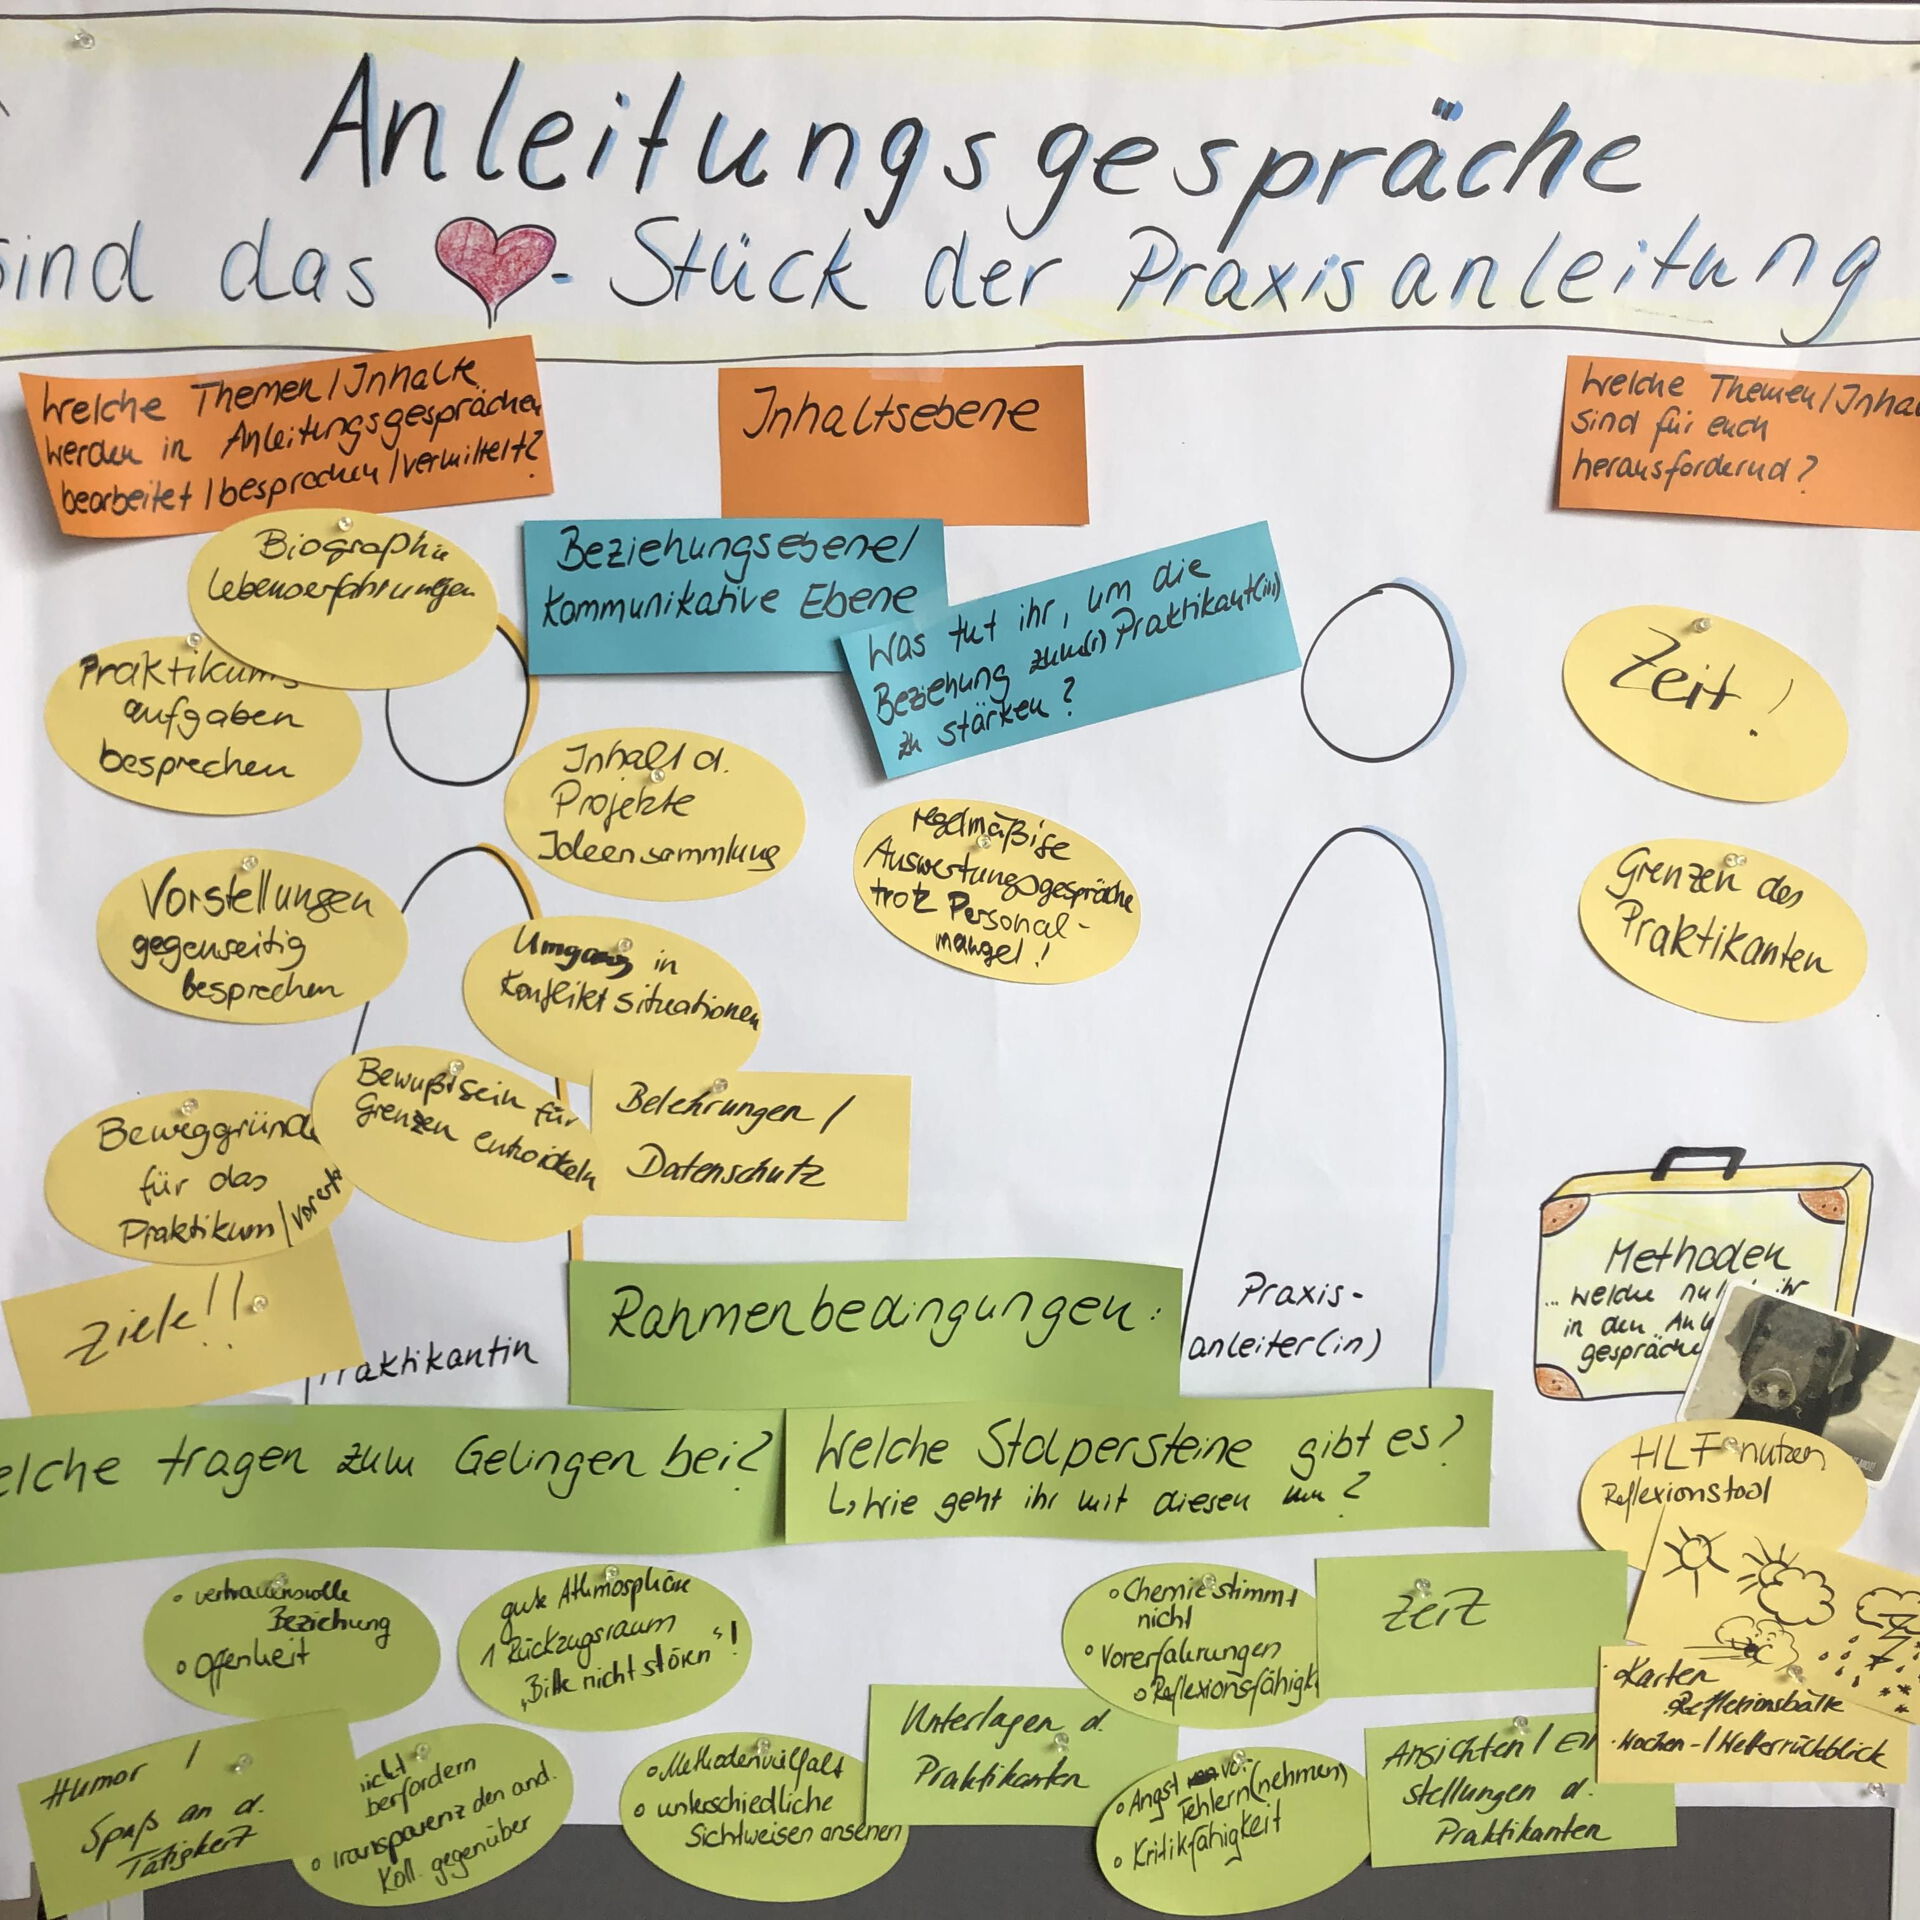 Anleitungsgespräche
sind das - Stück der Praxisanleitung
Welche Themen/Inhalte
werden in Anleitungsgesprächen
bearbeitet/besprochen/vermittelt?
Inhaltsebene
Welche Themen/Inhal
sind für euch
herausfordernd?
Biographie
Lebenserfahrungen
Beziehungsebene/
Kommunikative Ebene
Was tut ihr, um die
Beziehung zum(r) Praktikant(in)
zu stärken?
Praktikums
aufgaben
besprechen
Inhalt d.
Projekte
Ideensammlung
Zeit!
regelmäßige
Auswertungsgespräche
trotz Personal-
mangel!
Vorstellungen
gegenseitig
besprechen
Grenzen des
Praktikanten
Umgang in
Konfliktsituationen
Bewußtsein für
Grenzen entwickeln
Belehrungen/
Datenschutz
Beweggründe
für das
Praktikum/
Ziele!!
Praktikantin
Rahmenbedingungen:
Praxis-
anleiter(in)
Methoden
... welche ihr
in den
gespräche
elche tragen zum Gelingen bei?
Welche Stolpersteine gibt es?
↳ Wie geht ihr mit diesen um?
HLF nutzen
Reflexionstool
• vertrauensvolle
Beziehung
• Offenheit
gute Athmosphäre
1 Rückzugsraum
„Bitte nicht stören"!
• Chemie stimmt
nicht
• Vorerfahrungen
• Reflexionsfähigk
Zeit
• Karten
• Reflexionsbälle
• Wochen-/Wetterrückblick
Humor /
Spaß an d.
Tätigkeit
nicht
berfordern
• Transparenz den and.
Koll. gegenüber
• Methodenvielfalt
• unterschiedliche
Sichtweisen ansehen
Unterlagen d.
Praktikanten
• Angst vor
Fehlern (nehmen)
• Kritikfähigkeit
Ansichten/Ein
stellungen d.
Praktikanten